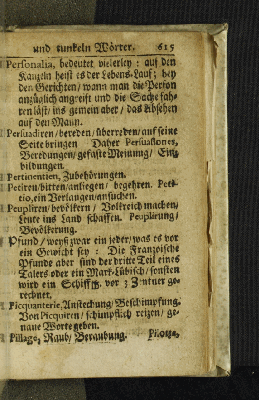 und tunkeln Wörter. 615
Personalia, bedeutet vielerley: auf den
Kanzeln heist es der Lebens-Lauf; bey
den Gerichten / wann man die Person
anzüglich angreift und die Sache fah-
ren läst / ins gemein aber / das Absehen
auf den Mann.
Persuadiren / bereden / überreden / auf seine
Seite bringen Daher Persuasiones,
Beredungen / gefaste Meinung / Ein-
bildungen.
Pertinentien, Zubehörungen.
Petiren / bitten / anliegen / begehren. Peti-
tio, ein Verlangen / ansuchen.
Peupliren / bevölkern / Volkreich machen /
Leute ins Land schaffen. Peuplirung /
Bevölkerung.
Pfund / weyß zwar ein jeder / was es vor
ein Gewicht sey: Die Französische
Pfunde aber sind der dritte Teil eines
Talers oder ein Mark-Lübisch / sonsten
wird ein Schiff vor 3 Zentner ge-
rechnet.
Picquanterie, Anstechung / Beschimpfung.
Von Picquiren / schimpflich reizen / ge-
naue Worte geben.
Pillage, Raub / Beraubung. Pilotte,